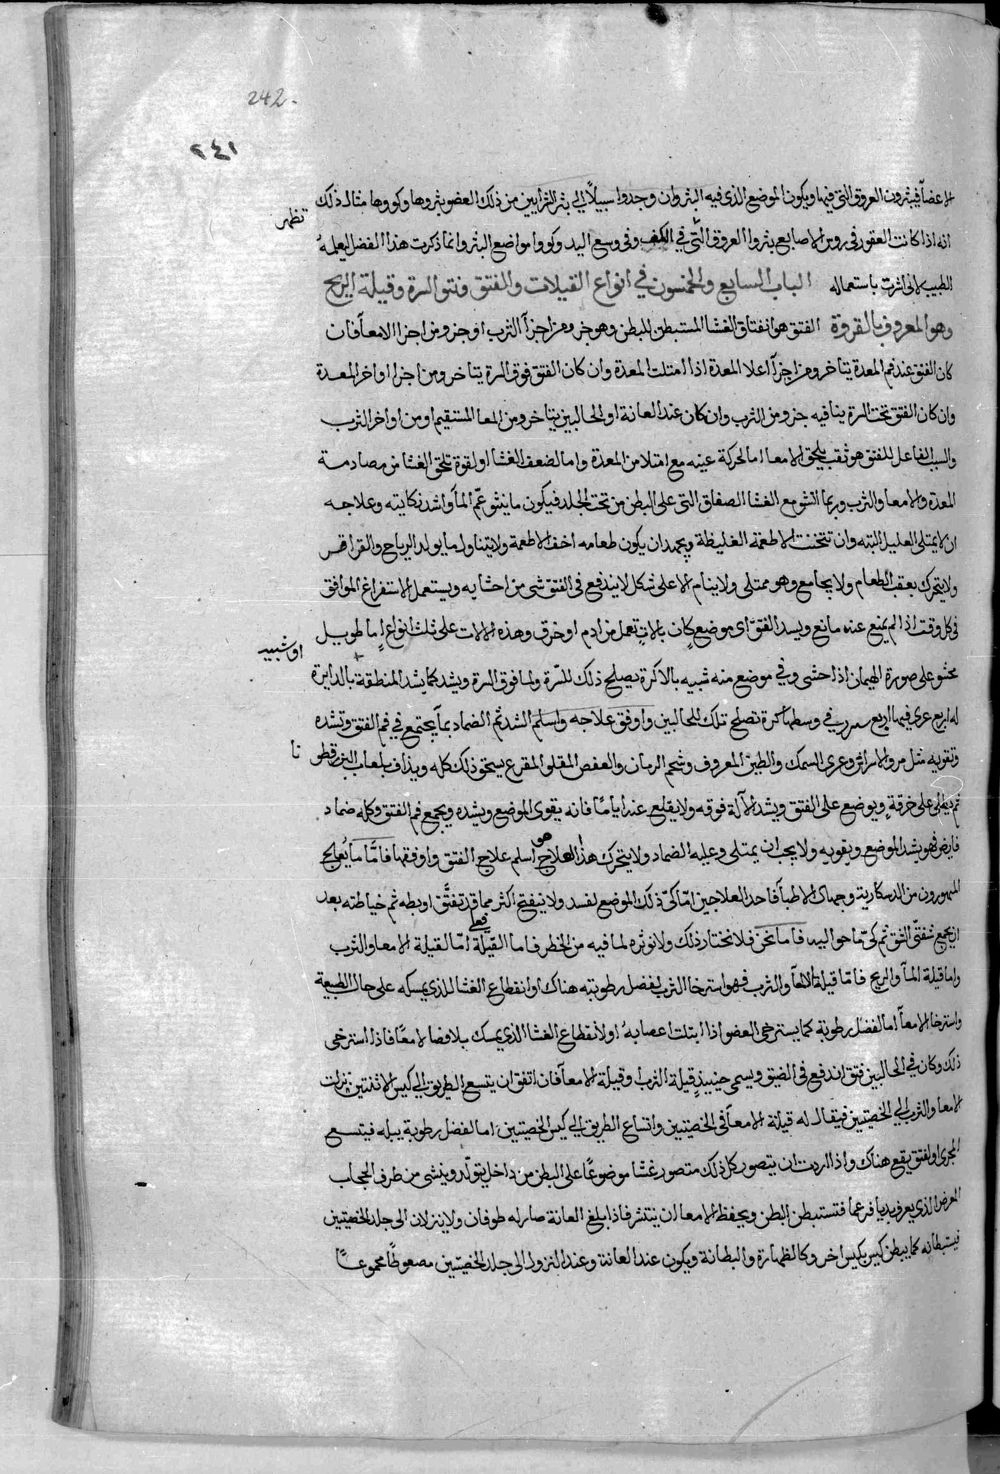 242.
٢٤١
الاعضاء فيبثرون العروق التي فيها ويكون الموضع الذي فيه البثر وان وجدوا سبيلاً الى بثر الشرايين من ذلك العضو بثروها وكووها مثال ذلك
تظهر
انه اذا كانت العقور في روس الاصابع بثروا العروق التي في الكف وفي وسع اليد وكووا مواضع البثر وانما ذكرت هذا الفصل ليعلمه
الطبيب لا انى اشرت باستعماله الباب السابع والخمسون في انواع القيلات والفتق ونتو السرة وقيلة الريح
وهو المعروف بالقروة الفتق هو انفتاق الغشا المستبطن للبطن وهو خروم من اجزآ الثرب او جزو من اجزا الامعآ فان
كان الفتق عند فم المعدة يتاخر ومن اجزآ اعلا المعدة اذا امتلت المعدة وان كان الفتق فوق السرة يتاخر ومن اجزا اواخر المعدة
وان كان الفتق تحت السرة ينافيه جزو من الثرب وان كان عند العانة او الحالبين يتاخر ومن المعا المستقيم او من اواخر الثرب
والسبب الفاعل للفتق هو ثقب يلحق الامعا اما لحركة عينه مع امتلا من المعدة واما لضعف الغشا او لقوة تلحق الغشا من مصادمة
المعدة والامعا والثرب وربما انشق مع الغشا الصفاق التي على البطن من تحت الجلد فيكون ما ينشو عم الما واشد نكايته وعلاجه
ان لا يمتلى العليل البته وان تتجنب الاطعمة الغليظة ويجهد ان يكون طعامه اخف الاطعمة ولا يتناول ما يولد الرياح والقراقر
ولا يتحرك بعقب الطعام ولا يجامع وهو ممتلى ولا ينام الا على شكل لا يندفع في الفتق شى من احشايه ويستعمل الاستفراغ الموافق
في كل وقت اذا لم يمنع عنه مانع ويسد الفتق اى موضع كان بالات تعمل من ادم او خرق وهذه الالات على ثلث انواع اما طويل
او شبيه
محشو على صورة الهميان اذا حشى وفي موضع منه شبيه بالاكرة يصلح ذلك للسرة ولما فوق السرة ويشد كما يشد المنطقة بالدايرة
له اربع عرى فيها اربع في وسطها كرة تصلح تلك للحالبين واوفق علاجه واسلم الشد ثم الضماد بما يجتمع في فم الفتق وتشده
وتقويه مثل مر والانزروت وغرى السمك والطين المعروف وشحم الرمان والعفص المقلو المقرع يسحق ذلك كله ويذاف بلعاب البزرقطو
نا
ثم يطلى على خرقة ويوضع على الفتق ويشد الالة فوقه ولا يقلع عنه اياما فانه يقوى الموضع ويشده ويجمع فم الفتق وكله ضماد
قابض فهو يشد الموضع ويقويه ولا يجب ان يمتلى وعليه الضماد ولا يتحرك هذا العلاج هو اسلم علاج الفتق واوفقها فاما ما يعالج
المتهورون من الدسكارية وجهال الاطبآ فاحد العلاجين امّا كىّ ذلك الموضع لفسد ولا ينفتح اكثر مما قد تفتّق او بطه ثم خياطته بعد
ان يجمع شفتي الشق ثم كىّ ما حواليه فاما نحن فلا نختار ذلك ولا نوثره لما فيه من الخطر فاما القيلة فهى امّا لقيلة الامعا والثرب
واما قيلة المآ والريح فامّا قيلة الامعآ والثرب فهو استرخا الثرب لفضل رطوبته هناك او انقطاع الغشا الذى يمسكه على حال الطبيعة
واسترخا الامعآ اما لفضل رطوبة كما يسترخى العضو اذا ابتلت اعصابه او لانقطاع الغشا الذى يمسك بلافضا لامعا فاذا استرخى
ذلك وكان في الحالبين فتق اندفع في الفتق ويسمى حينيذ قيلة الثرب وقيلة الامعآ فان اتفق ان يتسع الطريق الى كيس الانثيين نزلت
الامعا والثرب الى الخصيتين فيقال له قيلة الامعآ في الخصيتين واتساع الطريق الى كيس الخصيتين اما لفضل رطوبة يبله فيتسع
المجرى او لفتق يقع هناك واذا اردت ان يتصور كل ذلك متصور غشا موضوعًا على البطن من داخل يتولد وينشى من طرف الحجاب
العرض الذى يعرف بديافرغما فتستبطن البطن ويحفظ الامعا ان ينتشر فاذا بلغ العانة صار له طوفان ولا ينزلان الى جلد الخصيتين
فيستبطانه كما يبطن كيس بكيس اخر وكالظهارة والبطانة ويكون عند العانة وعند النزول الى جلد الخصيتين مضغوطًا مجموعًا